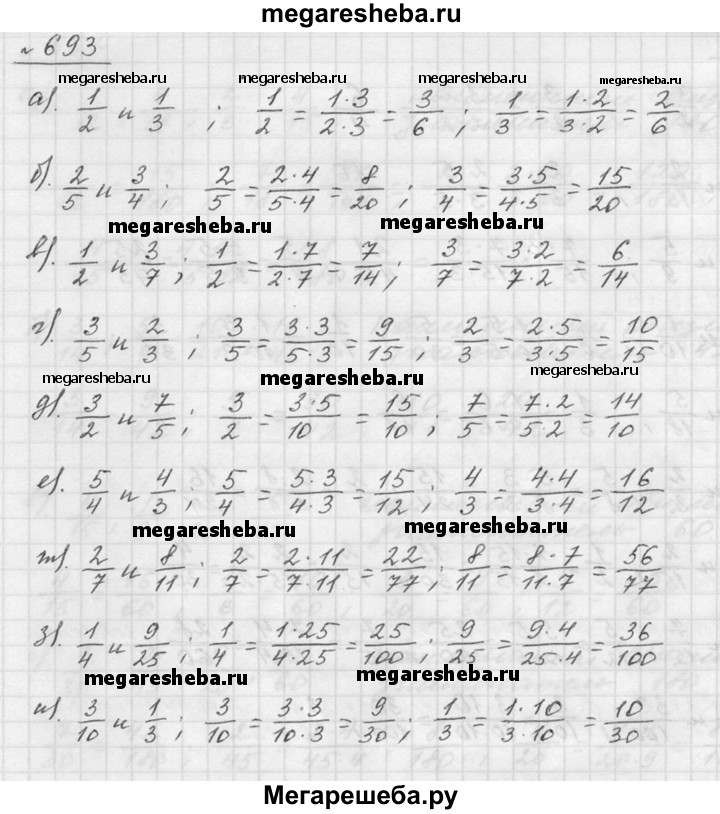 megaresheba.ru
№ 693
megaresheba.ru megaresheba.ru megaresheba.ru megaresheba.ru
а). 1/2 и 1/3 ; 1/2 = 1·3/2·3 = 3/6 ; 1/3 = 1·2/3·2 = 2/6
б). 2/5 и 3/4 ; 2/5 = 2·4/5·4 = 8/20 ; 3/4 = 3·5/4·5 = 15/20
megaresheba.ru megaresheba.ru
в). 1/2 и 3/7 ; 1/2 = 1·7/2·7 = 7/14 ; 3/7 = 3·2/7·2 = 6/14
г). 3/5 и 2/3 ; 3/5 = 3·3/5·3 = 9/15 ; 2/3 = 2·5/3·5 = 10/15
megaresheba.ru megaresheba.ru megaresheba.ru
д). 3/2 и 7/5 ; 3/2 = 3·5/10 = 15/10 ; 7/5 = 7·2/5·2 = 14/10
е). 5/4 и 4/3 ; 5/4 = 5·3/4·3 = 15/12 ; 4/3 = 4·4/3·4 = 16/12
megaresheba.ru megaresheba.ru
ж). 2/7 и 8/11 ; 2/7 = 2·11/7·11 = 22/77 ; 8/11 = 8·7/11·7 = 56/77
з). 1/4 и 9/25 ; 1/4 = 1·25/4·25 = 25/100 ; 9/25 = 9·4/25·4 = 36/100
megaresheba.ru megaresheba.ru
и). 3/10 и 1/3 ; 3/10 = 3·3/10·3 = 9/30 ; 1/3 = 1·10/3·10 = 10/30
Мегарешеба.ру